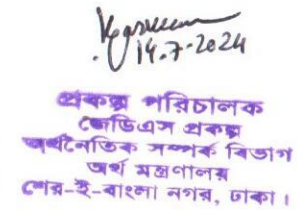 14.7-2024
প্রকল্প পরিচালক
জেডিএস প্রকল্প
অর্থনৈতিক সম্পর্ক বিভাগ
অর্থ মন্ত্রণালয়
শের-ই-বাংলা নগর, ঢাকা।